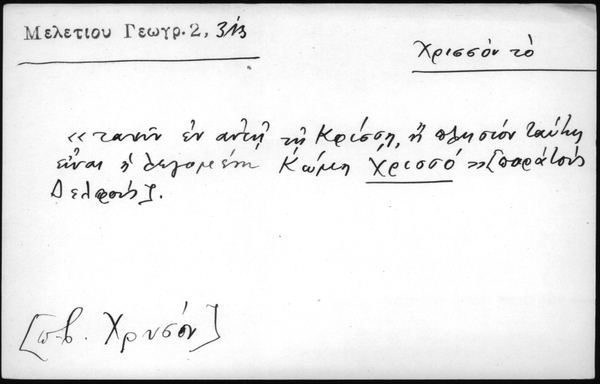 Μελετίου Γεωγρ. 2, 313
Χρισσόν τό
«τανῦν ἐν αὐτῇ τῇ Κρίσσῃ, ἢ πλησίον ταύτης
εἶναι ἡ λεγομένη Κώμη Χρισσό» [παρὰ τοὺς
Δελφούς].
[π.β. Χρυσόν]